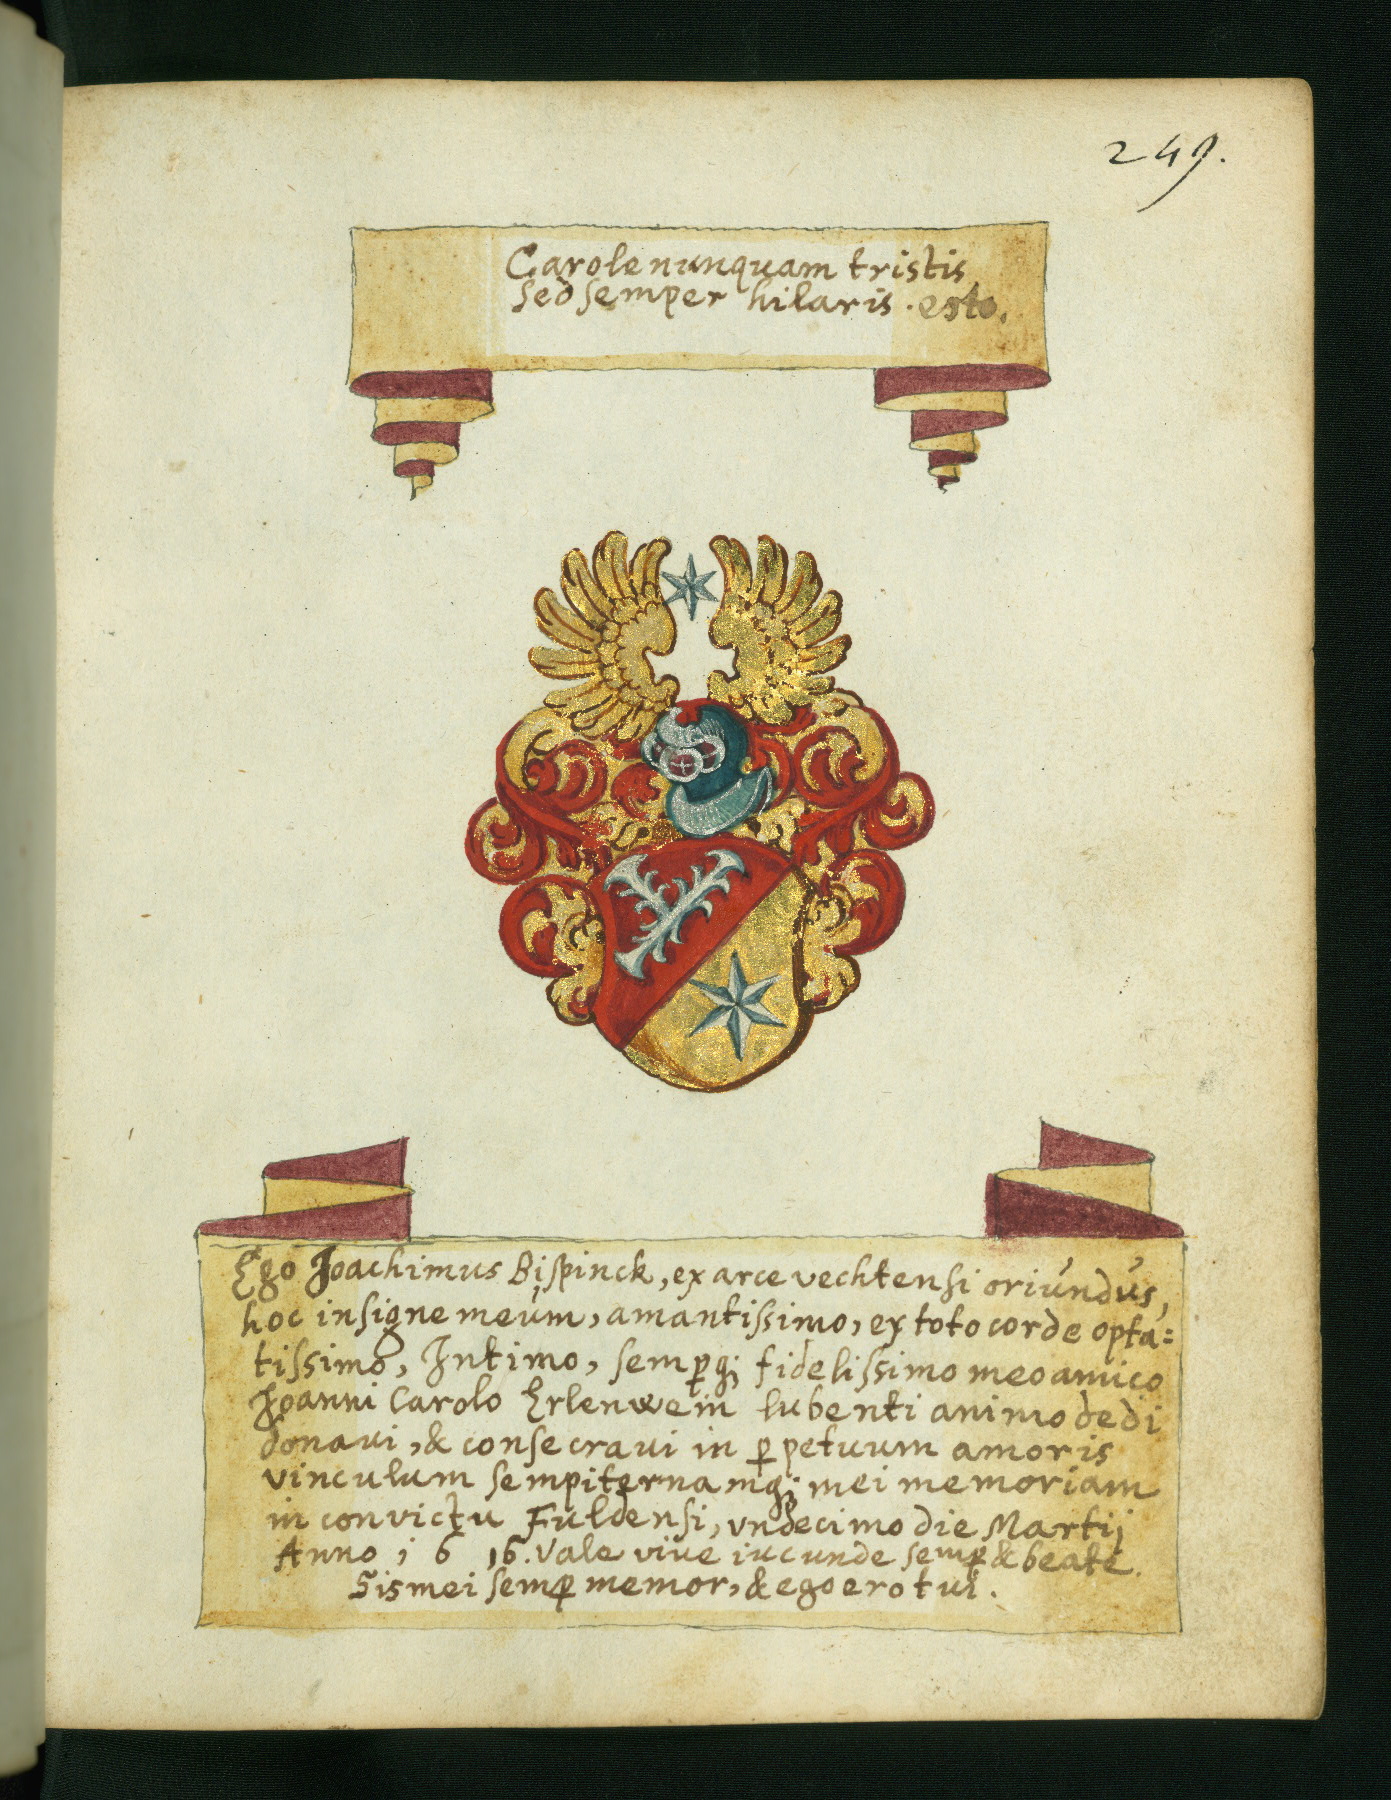 249.
Carole nunquam tristis
sed semper hilaris . esto.
Ego Joachimus Bispinck, ex arce vechtensi oriundus,
hoc insigne meum, amantissimo, ex toto corde opta=
tissimo, Intimo, semꝑq; fidelissimo meo amico
Joanni Carolo Erlenwein lubenti animo dedi
donavi, & consecravi in ꝑpetuum amoris
vinculum sempiternamq; mei memoriam
in convictu Fuldensi, vndecimo die Martij
Anno 1616. Vale viue iucunde semꝑ & beate.
Sis mei semꝑ memor, & ego ero tui.